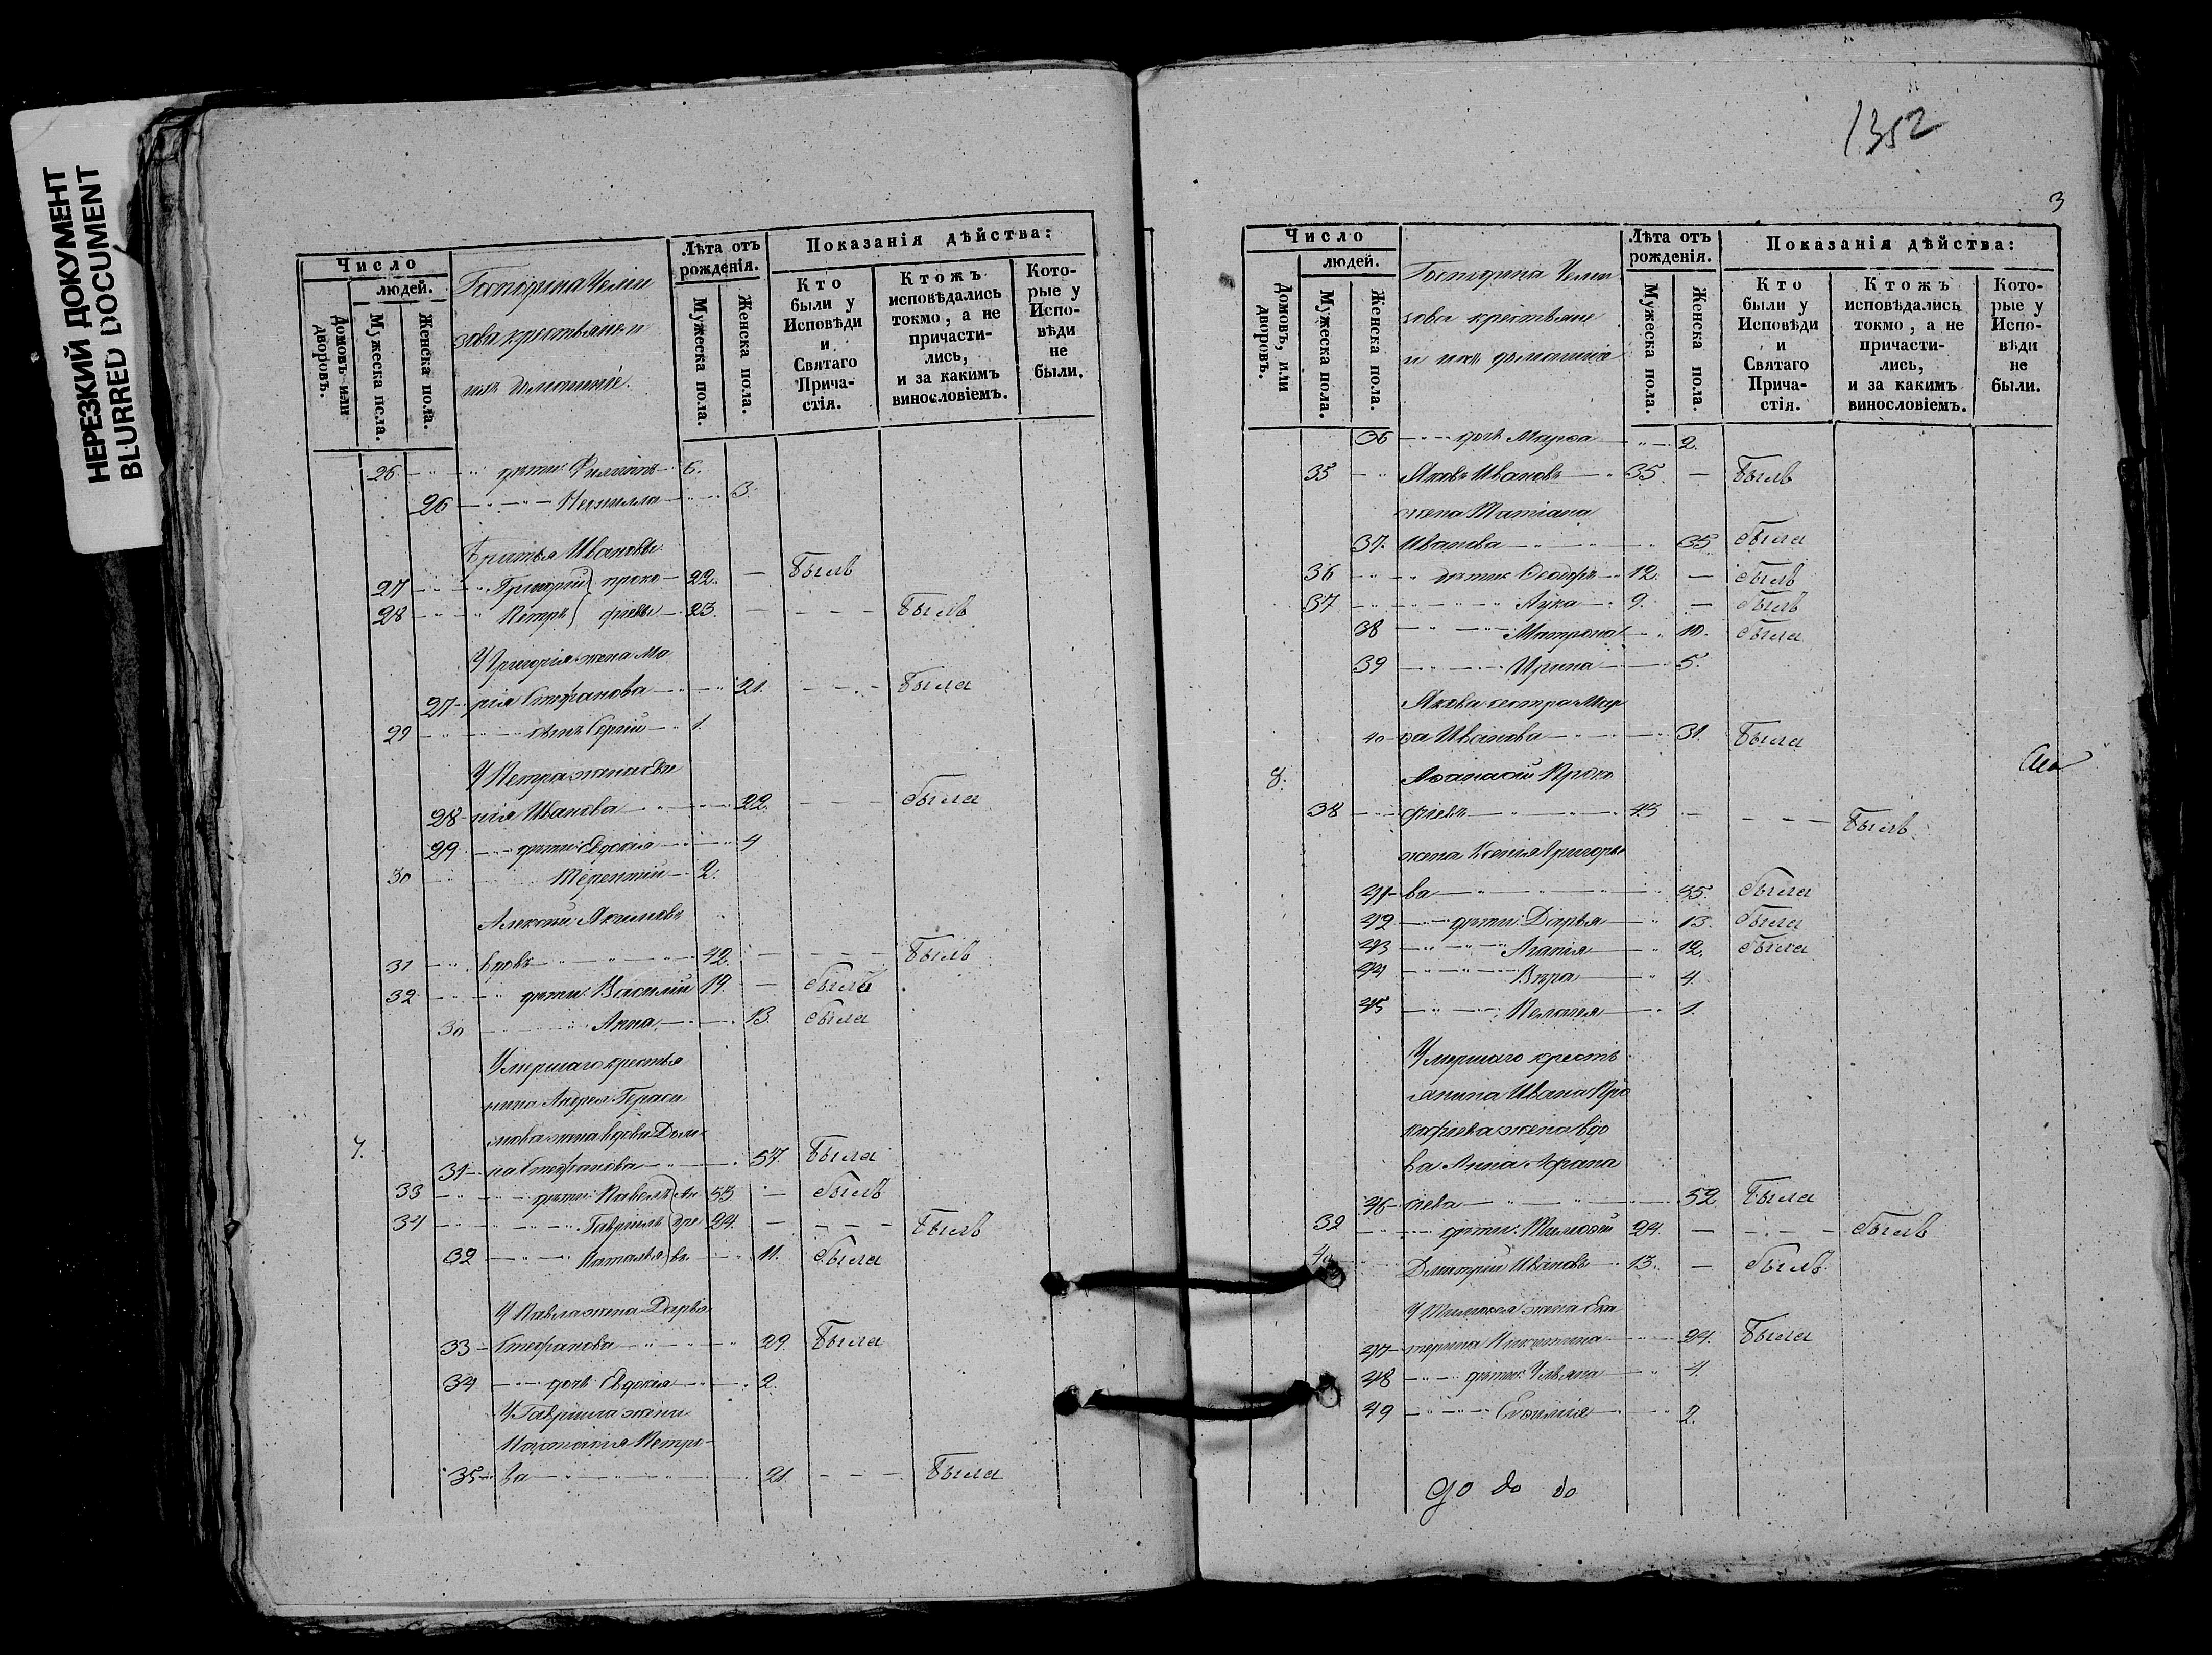 НЕРЕЗКИЙ ДОКУМЕНТ
BLURRED DOCUMENT
Число
людей.
Домовъ или дворовъ.
Мужеска пола.
Женска пола.
Господина Чели
зова крестьяне и
ихъ домашніе.
Лѣта отъ рожденія.
Мужеска пола.
Женска пола.
Показанія дѣйства:
Кто были у Исповѣди и Святаго Прича- стія.
Ктожъ исповѣдались токмо, а не причасти- лись, и за какимъ винословіемъ.
Кото- рые у Испо- вѣди не были.
26 дѣти: Филиппъ 6.
26 Неонилла 3.
Братья Ивановы
27 Григорій проко 22. Былъ
28 Петръ фіевы 23 Былъ
У Григорія жена Ма
27 рія Стефанова 21. Была
29 сынъ Сергій 1.
У Петра жена
28 нія Иванова 22. Была
29 дѣти: Евдокія 4
30 Терентій 2.
Алексѣй Якимовъ
31 вдовъ 42. Былъ
32 дѣти: Василій 19. былъ
30 Анна 13. была
Умершаго крестья
нина Андрея Гераси
7. мова жена вдова Дом
31 на Стефанова 57. Была
33 дѣти: Павелъ Ан 33 былъ
34 Гавріилъ дре 24. Былъ
32 Наталья вы 11. была
У Павла жена Дарья
33 Стефанова 29. Была
34 дочь Евдокія 2.
У Гавріила жена
Петро
35 ва 21. Была
1352
3
Число
людей.
Домовъ, или дворовъ.
Мужеска пола.
Женска пола.
Господина Чели
зова крестьяне
и ихъ домашніе
Лѣта отъ рожденія.
Мужеска пола.
Женска пола.
Показанія дѣйства:
Кто были у Исповѣди и Святаго Прича- стія.
Ктожъ исповѣдались токмо, а не причасти- лись, и за какимъ винословіемъ.
Кото- рые у Испо- вѣди не были.
36 дочь Марѳа 2.
35 Яковъ Ивановъ 35. Былъ
жена Татіана
37. Иванова 35 была
36 дѣти: Ѳеодоръ 12. былъ
37 Лука 9. былъ
38 Матрона 10. была
39 Ирина 5.
Якова сестра Мар
40 ѳа Иванова 31. Была
8. Аѳанасій Проко
38 фіевъ 43 Былъ
жена Ксенія Григорье
41 ва 35. была
42 дѣти: Дарья 13. была
43 Агапія 12. была
44 Вѣра 4.
45 Пелагея 1.
Умершаго кресть
янина Ивана Про
кофіева жена вдо
ва Анна Афана
46 сіева 52 Была
39 дѣти: Тимоѳей 24. былъ
40 Дмитрій Ивановъ 13. былъ
У Тимоѳея жена Ека
47 терина Никитина 24. Была
48 дѣти: Ульяна 4.
49 Евѳимія 2.
до до do